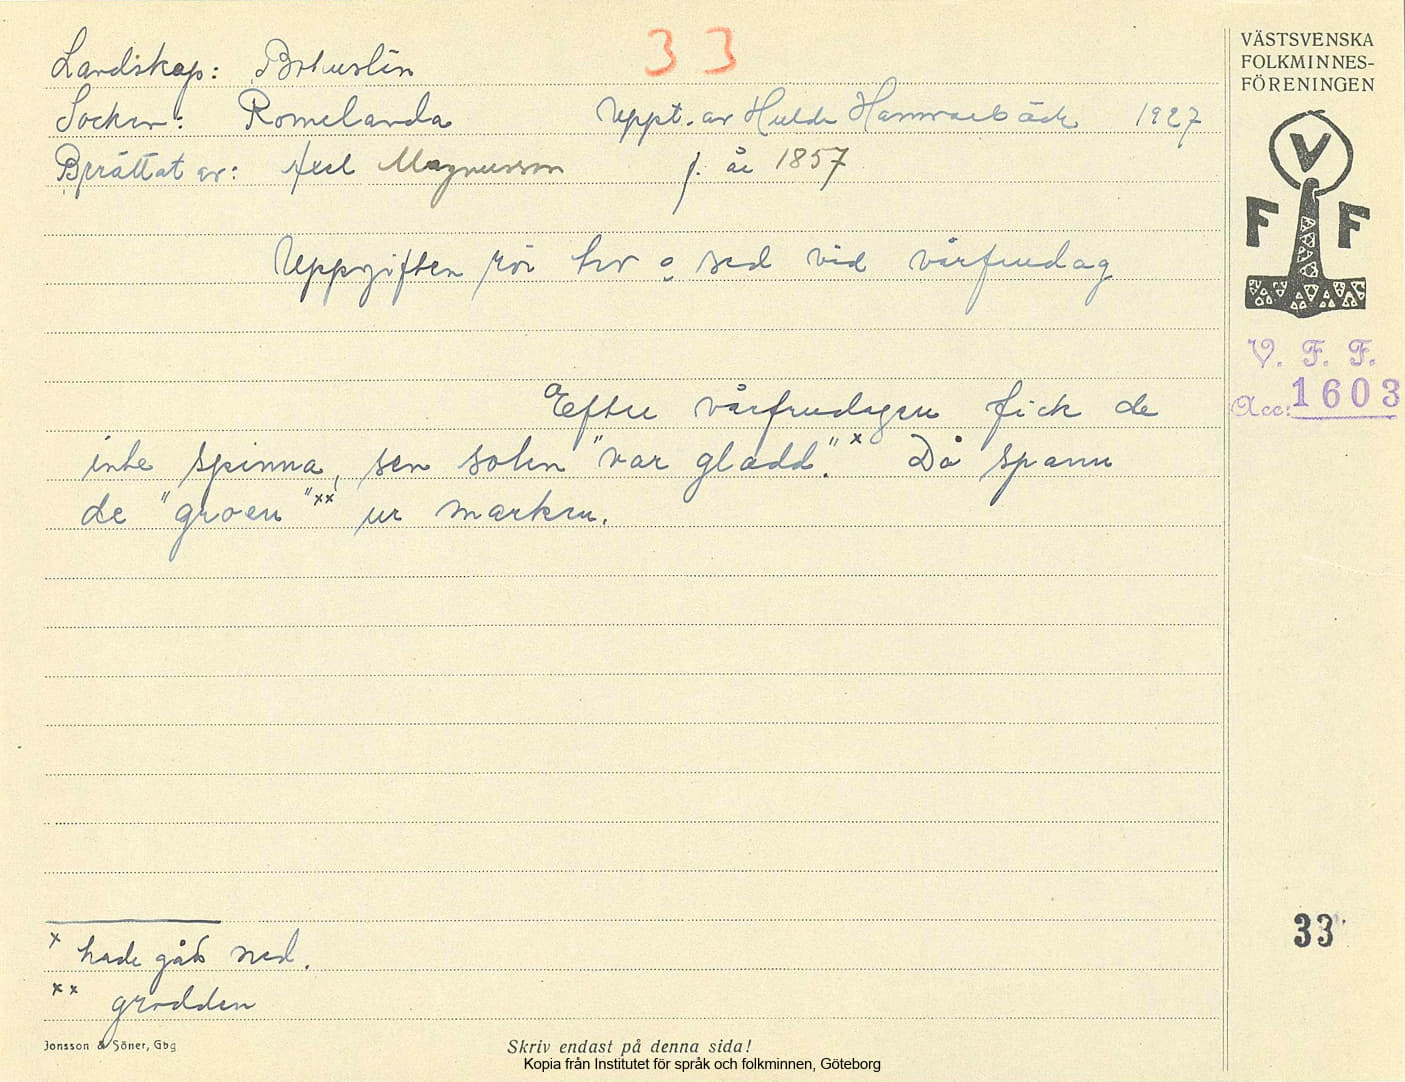 33
Landskap: Bohuslän
Socken: Romelanda Uppt. av Hulda Hammarbäck 1927
Berättat av: Axel Magnusson f. år 1857
Uppgiften rör tro o sed vid vårfrudag
Efter vårfrudagen fick de
inte spinna, sen solen "var gladd."x Då spann
de "groen"xx ur marken.
x hade gått ned.
xx grodden
Jonsson & Söner, Gbg
Skriv endast på denna sida!
Kopia från Institutet för språk och folkminnen, Göteborg
VÄSTSVENSKA
FOLKMINNES-
FÖRENINGEN
V
F F
V. F. F.
Acc: 1603
33